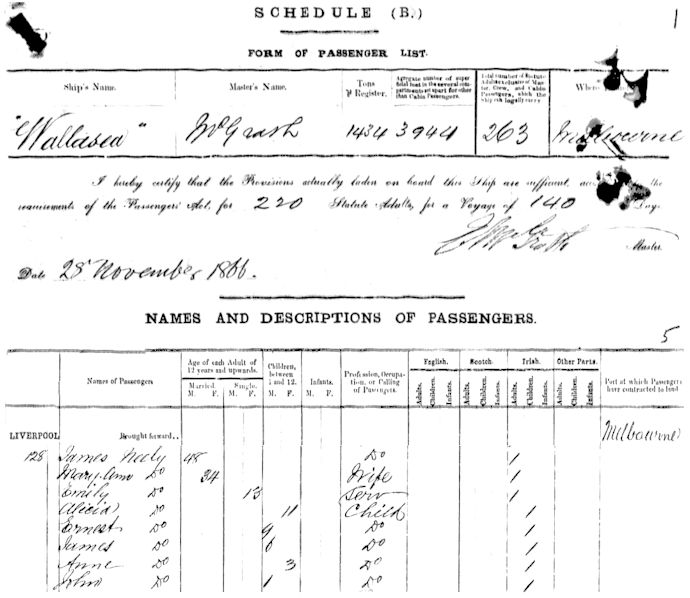 SCHEDULE (B.) 1
FORM OF PASSENGER LIST.
Ship's Name. Master's Name. Tons Register. Aggregate number of superficial feet in the several compartments set apart for other than Cabin Passengers. Total number of Statute Adults, exclusive of Master, Crew, and Cabin Passengers, which the ship can legally carry. Where
"Wallasea" McGrath 1434 3944 263 Melbourne
I hereby certify that the Provisions actually laden on board this Ship are sufficient, the
requirements of the Passengers' Act, for 220 Statute Adults, for a Voyage of 140 Days.
Master.
Date 28 November 1866.
NAMES AND DESCRIPTIONS OF PASSENGERS.
5
Names of Passengers Age of each Adult of 12 years and upwards. Married. M. F. Single. M. F. Children, between 1 and 12. M. F. Infants. M. F. Profession, Occupation, or Calling of Passengers. English. Adults. Children. Infants. Scotch. Adults. Children. Infants. Irish. Adults. Children. Infants. Other Parts. Adults. Children. Infants. Port at which Passengers have contracted to land
LIVERPOOL Brought forward.. Melbourne
128 James Neely 48 Do 1
Mary Ann Do 34 Wife 1
Emily Do 13 Serv 1
Alicia Do 11 Child 1
Ernest Do 9 Do 1
James Do 6 Do 1
Anne Do 3 Do 1
John Do 1 Do 1